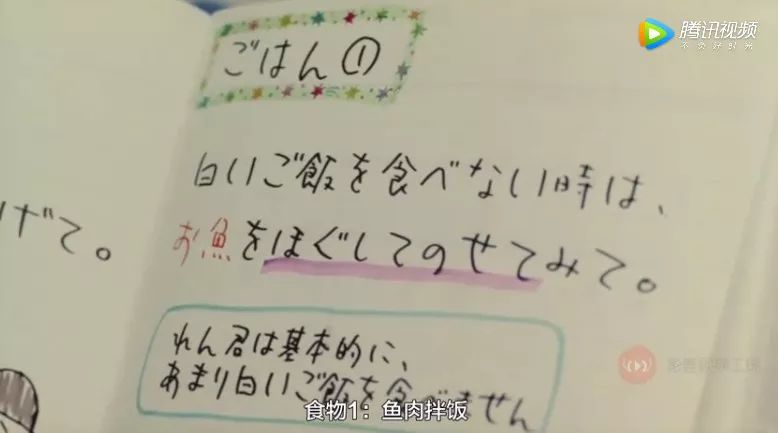 腾讯视频
不负好时光
ごはん①
白いご飯を食べない時は、
お魚をほぐしてのせてみて。
げて。
れん君は基本的に、
あまり白いご飯を食べません
食物1：鱼肉拌饭